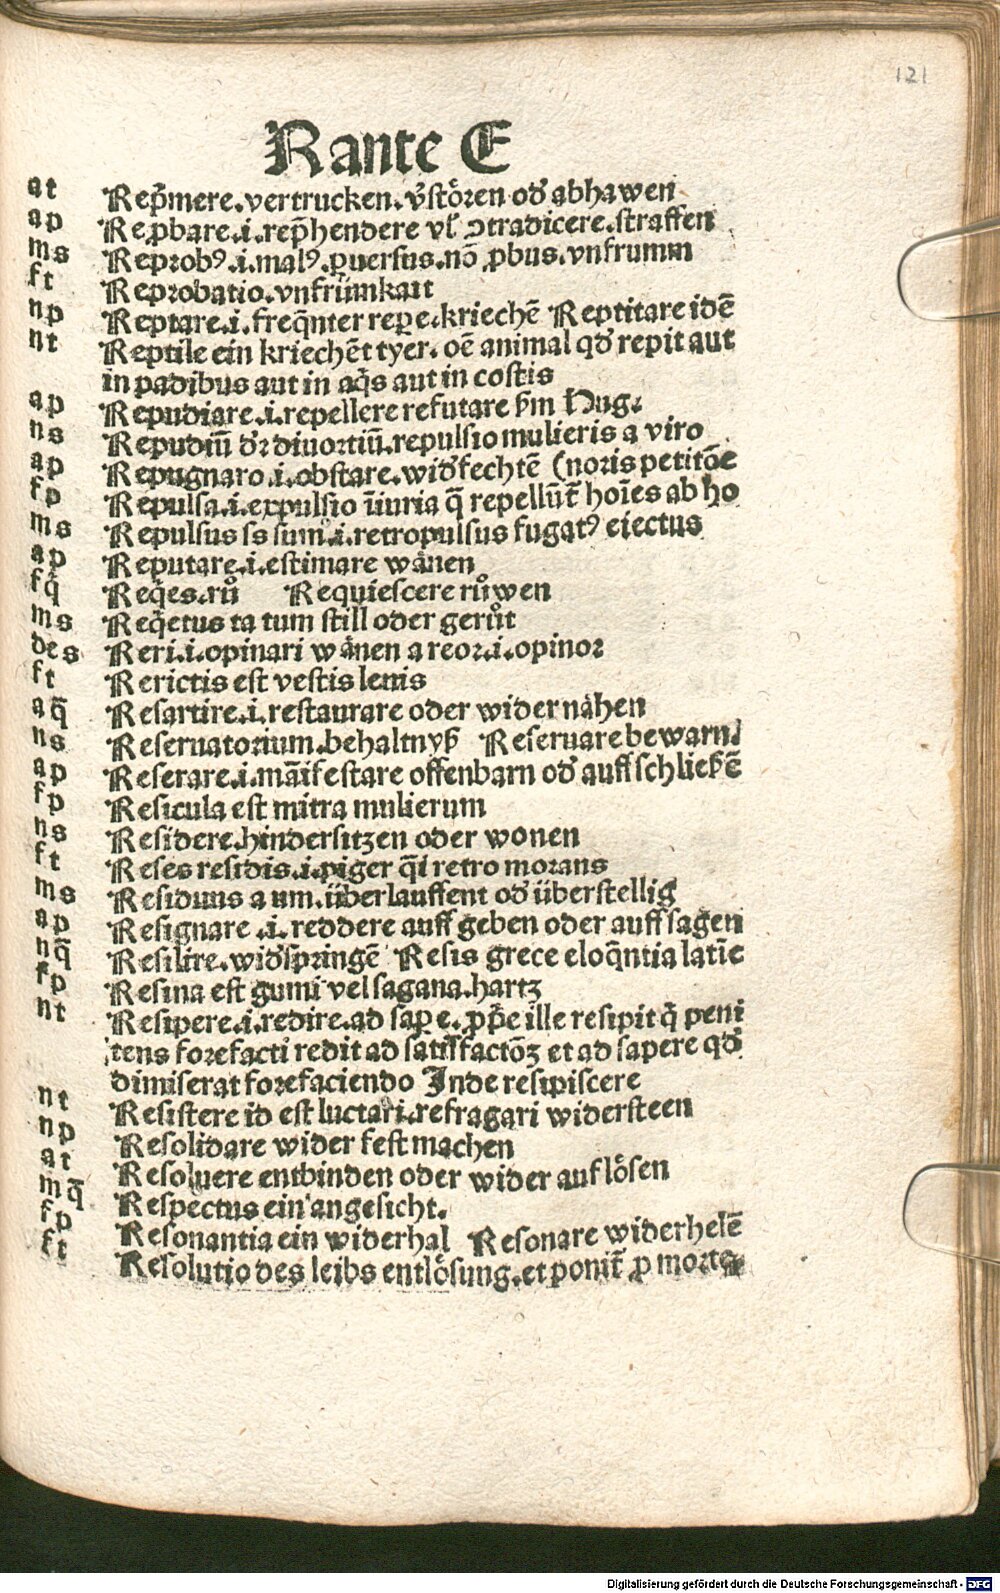 121
Rante E
at Rep̄mere.vertrucken.v̄stören od̕ abhawen
ap Reꝓbare.i.rep̄hendere vl̕ ↄtradicere.straffen
ms Reprobꝰ.i.malꝰ.ꝑuersus.nō ꝓbus.vnfrumm
ft Reprobatio.vnfrümkait
np Reptare.i.freq̄nter repe̲.kriechē Reptitare idē
nt Reptile ein kriechēt tyer.oē animal qd̕ repit aut
in padibus aut in aq̄s aut in costis
ap Repudiare.i.repellere refutare ẜm Hug.
ns Repudiū dꝛ diuortiū.repulsio mulieris a viro
ap Repugnaro.i.obstare.wid̕fechtē (noris petitōe
fp Repulsa.i.expulsio īiuria q̄ repellūt̄ hoīes ab ho
ms Repulsus ss sum.i.retropulsus fugatꝰ eiectus
ap Reputare.i.estimare wånen
fq̄ Req̄es.ruͦ Requiescere ruͦwen
ms Req̄etus ta tum still oder geruͦt
des Reri.i.opinari wånen a reor.i.opinor
ft Rerictis est vestis lenis
aq̄ Resartire.i.restaurare oder wider nåhen
ns Reseruatorium.behaltnyß Reseruare bewarn.
ap Reserare.i.māifestare offenbarn od̕ auffschließē
fp Resicula est mitra mulierum
ns Residere.hindersitzen oder wonen
ft Reses residis.i.piger q̄i retro morans
ms Residuus a um.überlauffent od̕ überstellig
ap Resignare .i. reddere auff geben oder auff sagen
nq̄ Resilire.wid̕springē Resis grece eloq̄ntia latīe
fp Resina est gumi vel sagana.hartz
nt Resipere.i.redire.ad sape̲.ꝓp̄e ille resipit q̄ peni
tens forefacti redit ad satisfactōꝫ et ad sapere qd̕
dimiserat forefaciendo Inde resipiscere
nt Resistere id est luctari.refragari widersteen
np Resolidare wider fest machen
at Resoluere entbinden oder wider auflösen
mq̄ Respectus ein angesicht.
fp Resonantia ein widerhal Resonare widerhelē
ft Resolutio des leibs entlösung.et ponit̄ ꝓ morte
Digitalisierung gefördert durch die Deutsche Forschungsgemeinschaft - DFG